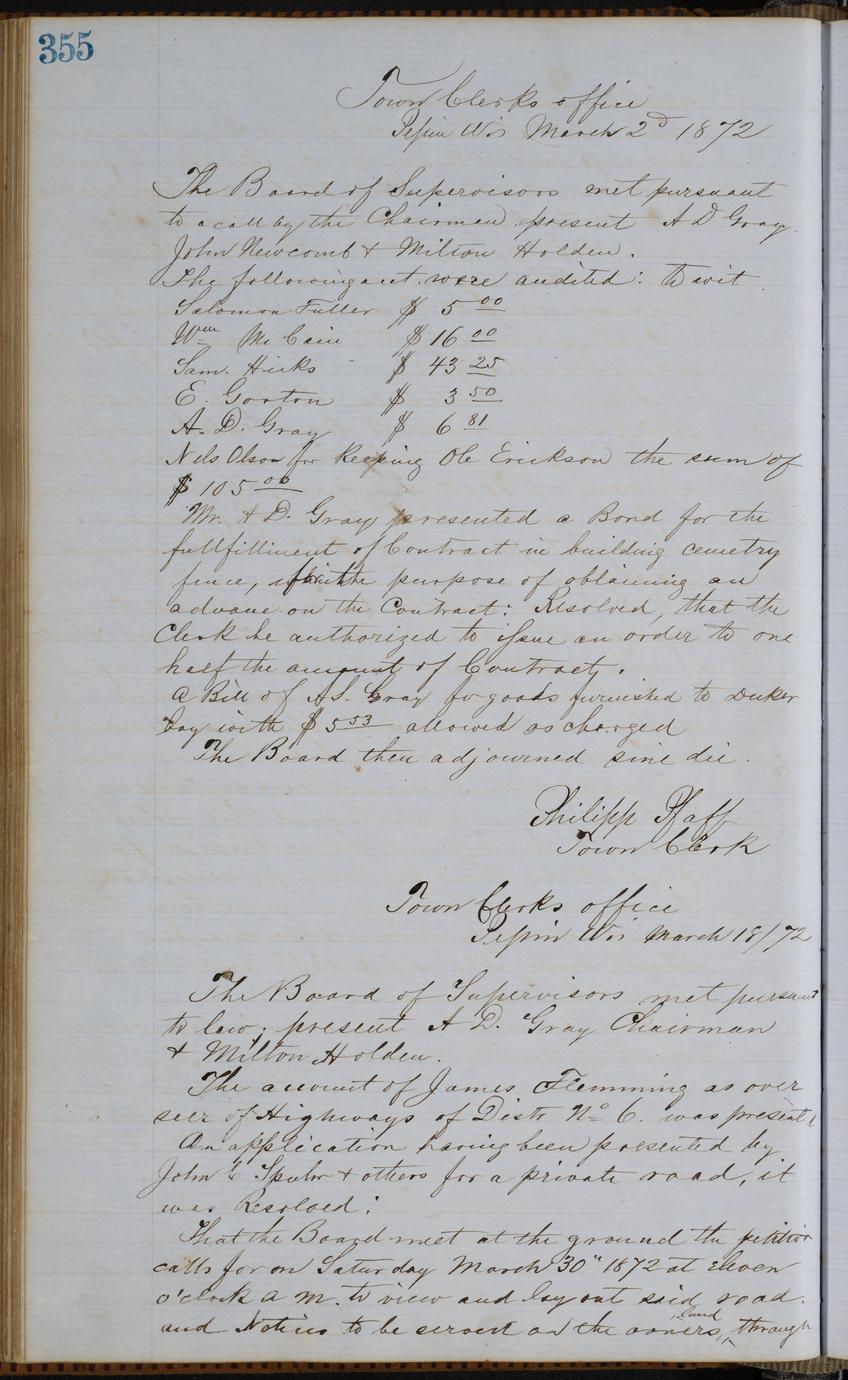 355
Town Clerks office
Pepin Wis March 2d 1872
The Board of Supervisors met pursuant
to a call by the Chairman present A D Gray
John Newcomb & Milton Holden.
The following act. were audited: to wit
Salomon Fuller $ 5 00
Wm Mc Cain $ 16 00
Sam. Hicks $ 43 25
E. Gorton $ 3 50
A. D. Gray $ 6 81
Nels Olson for keeping Ole Erickson the sum of
$ 105 00
Mr. A D. Gray presented a Bond for the
fullfillment of Contract in building cemetry
fence, for the purpose of obtaining an
advance on the Contract: Resolved, that the
Clerk be authorized to issue an order to one
half the amount of Contract.
A Bill of A S. Gray for goods furnished to
boy with $ 5 53 allowed as charged
The Board then adjourned sine die.
Philipp Pfaff
Town Clerk
Town Clerks office
Pepin Wis March 18/72
The Board of Supervisors met pursuant
to law; present A D. Gray Chairman
& Milton Holden.
The account of James Flemming as over
seer of Highways of Distr No 6. was present
An application having been presented by
John & others for a private road, it
was Resolved:
That the Board meet at the ground the petition
calls for on Saturday March 30" 1872 at eleven
o'clock A M. to view and lay out said road.
and Notices to be served on the land owners, through